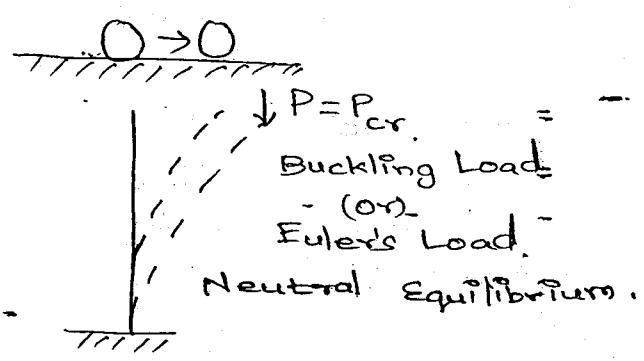 P = Pcr.
Buckling Load
(or)
Euler's Load.
Neutral Equilibrium.